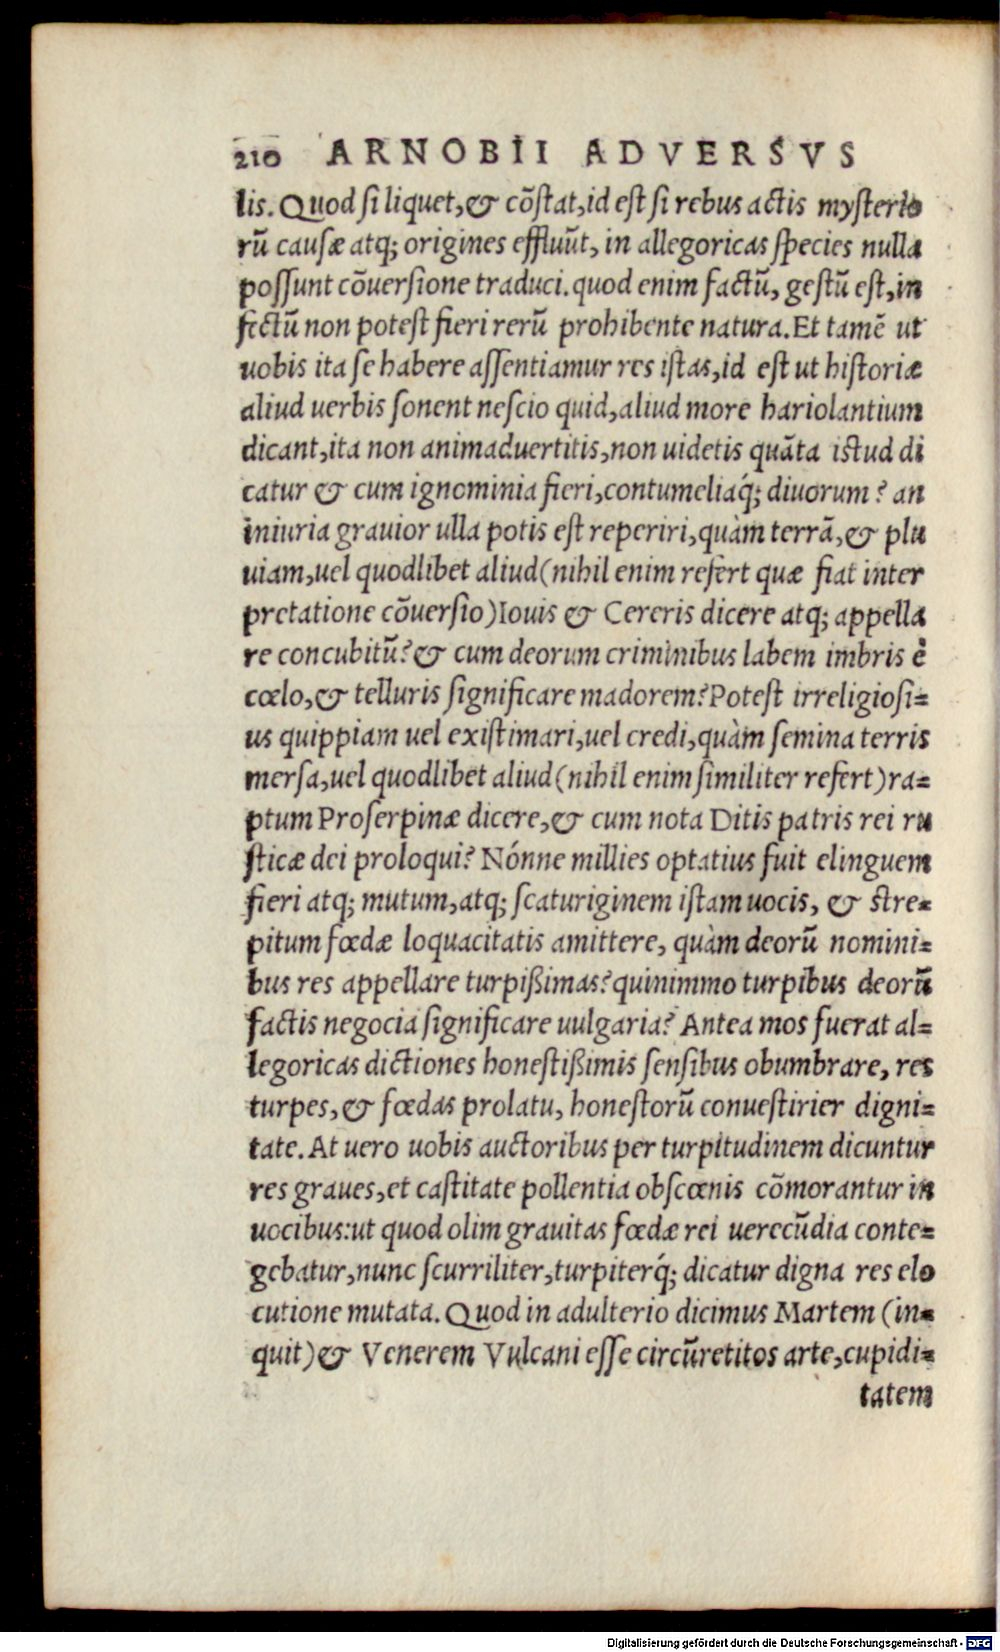 210 ARNOBII ADVERSVS
lis. Quod si liquet, & cōstat, id est si rebus actis mysterio
rū causæ atq; origines effluūt, in allegoricas species nulla
possunt cōuersione traduci. quod enim factū, gestū est, in
fectū non potest fieri rerū prohibente natura. Et tamē ut
uobis ita se habere assentiamur res istas, id est ut historiæ
aliud uerbis sonent nescio quid, aliud more hariolantium
dicant, ita non animaduertitis, non uidetis quāta istud di
catur & cum ignominia fieri, contumeliaq́; diuorum? an
iniuria grauior ulla potis est reperiri, quàm terrā, & plu
uiam, uel quodlibet aliud (nihil enim refert quæ fiat inter
pretatione cōuersio) Iouis & Cereris dicere atq; appella
re concubitū? & cum deorum criminibus labem imbris è
cœlo, & telluris significare madorem? Potest irreligiosi=
us quippiam uel existimari, uel credi, quàm semina terris
mersa, uel quodlibet aliud (nihil enim similiter refert) ra=
ptum Proserpinæ dicere, & cum nota Ditis patris rei ru
sticæ dei proloqui? Nónne millies optatius fuit elinguem
fieri atq; mutum, atq; scaturiginem istam uocis, & stre=
pitum fœdæ loquacitatis amittere, quàm deorū nomini=
bus res appellare turpißimas? quinimmo turpibus deorū
factis negocia significare uulgaria? Antea mos fuerat al=
legoricas dictiones honestißimis sensibus obumbrare, res
turpes, & fœdas prolatu, honestorū conuestirier digni=
tate. At uero uobis auctoribus per turpitudinem dicuntur
res graues, et castitate pollentia obscœnis cōmorantur in
uocibus: ut quod olim grauitas fœdæ rei uerecūdia conte=
gebatur, nunc scurriliter, turpiterq́; dicatur digna res elo
cutione mutata. Quod in adulterio dicimus Martem (in=
quit) & Venerem Vulcani esse circūretitos arte, cupidi=
tatem
Digitalisierung gefördert durch die Deutsche Forschungsgemeinschaft - DFG